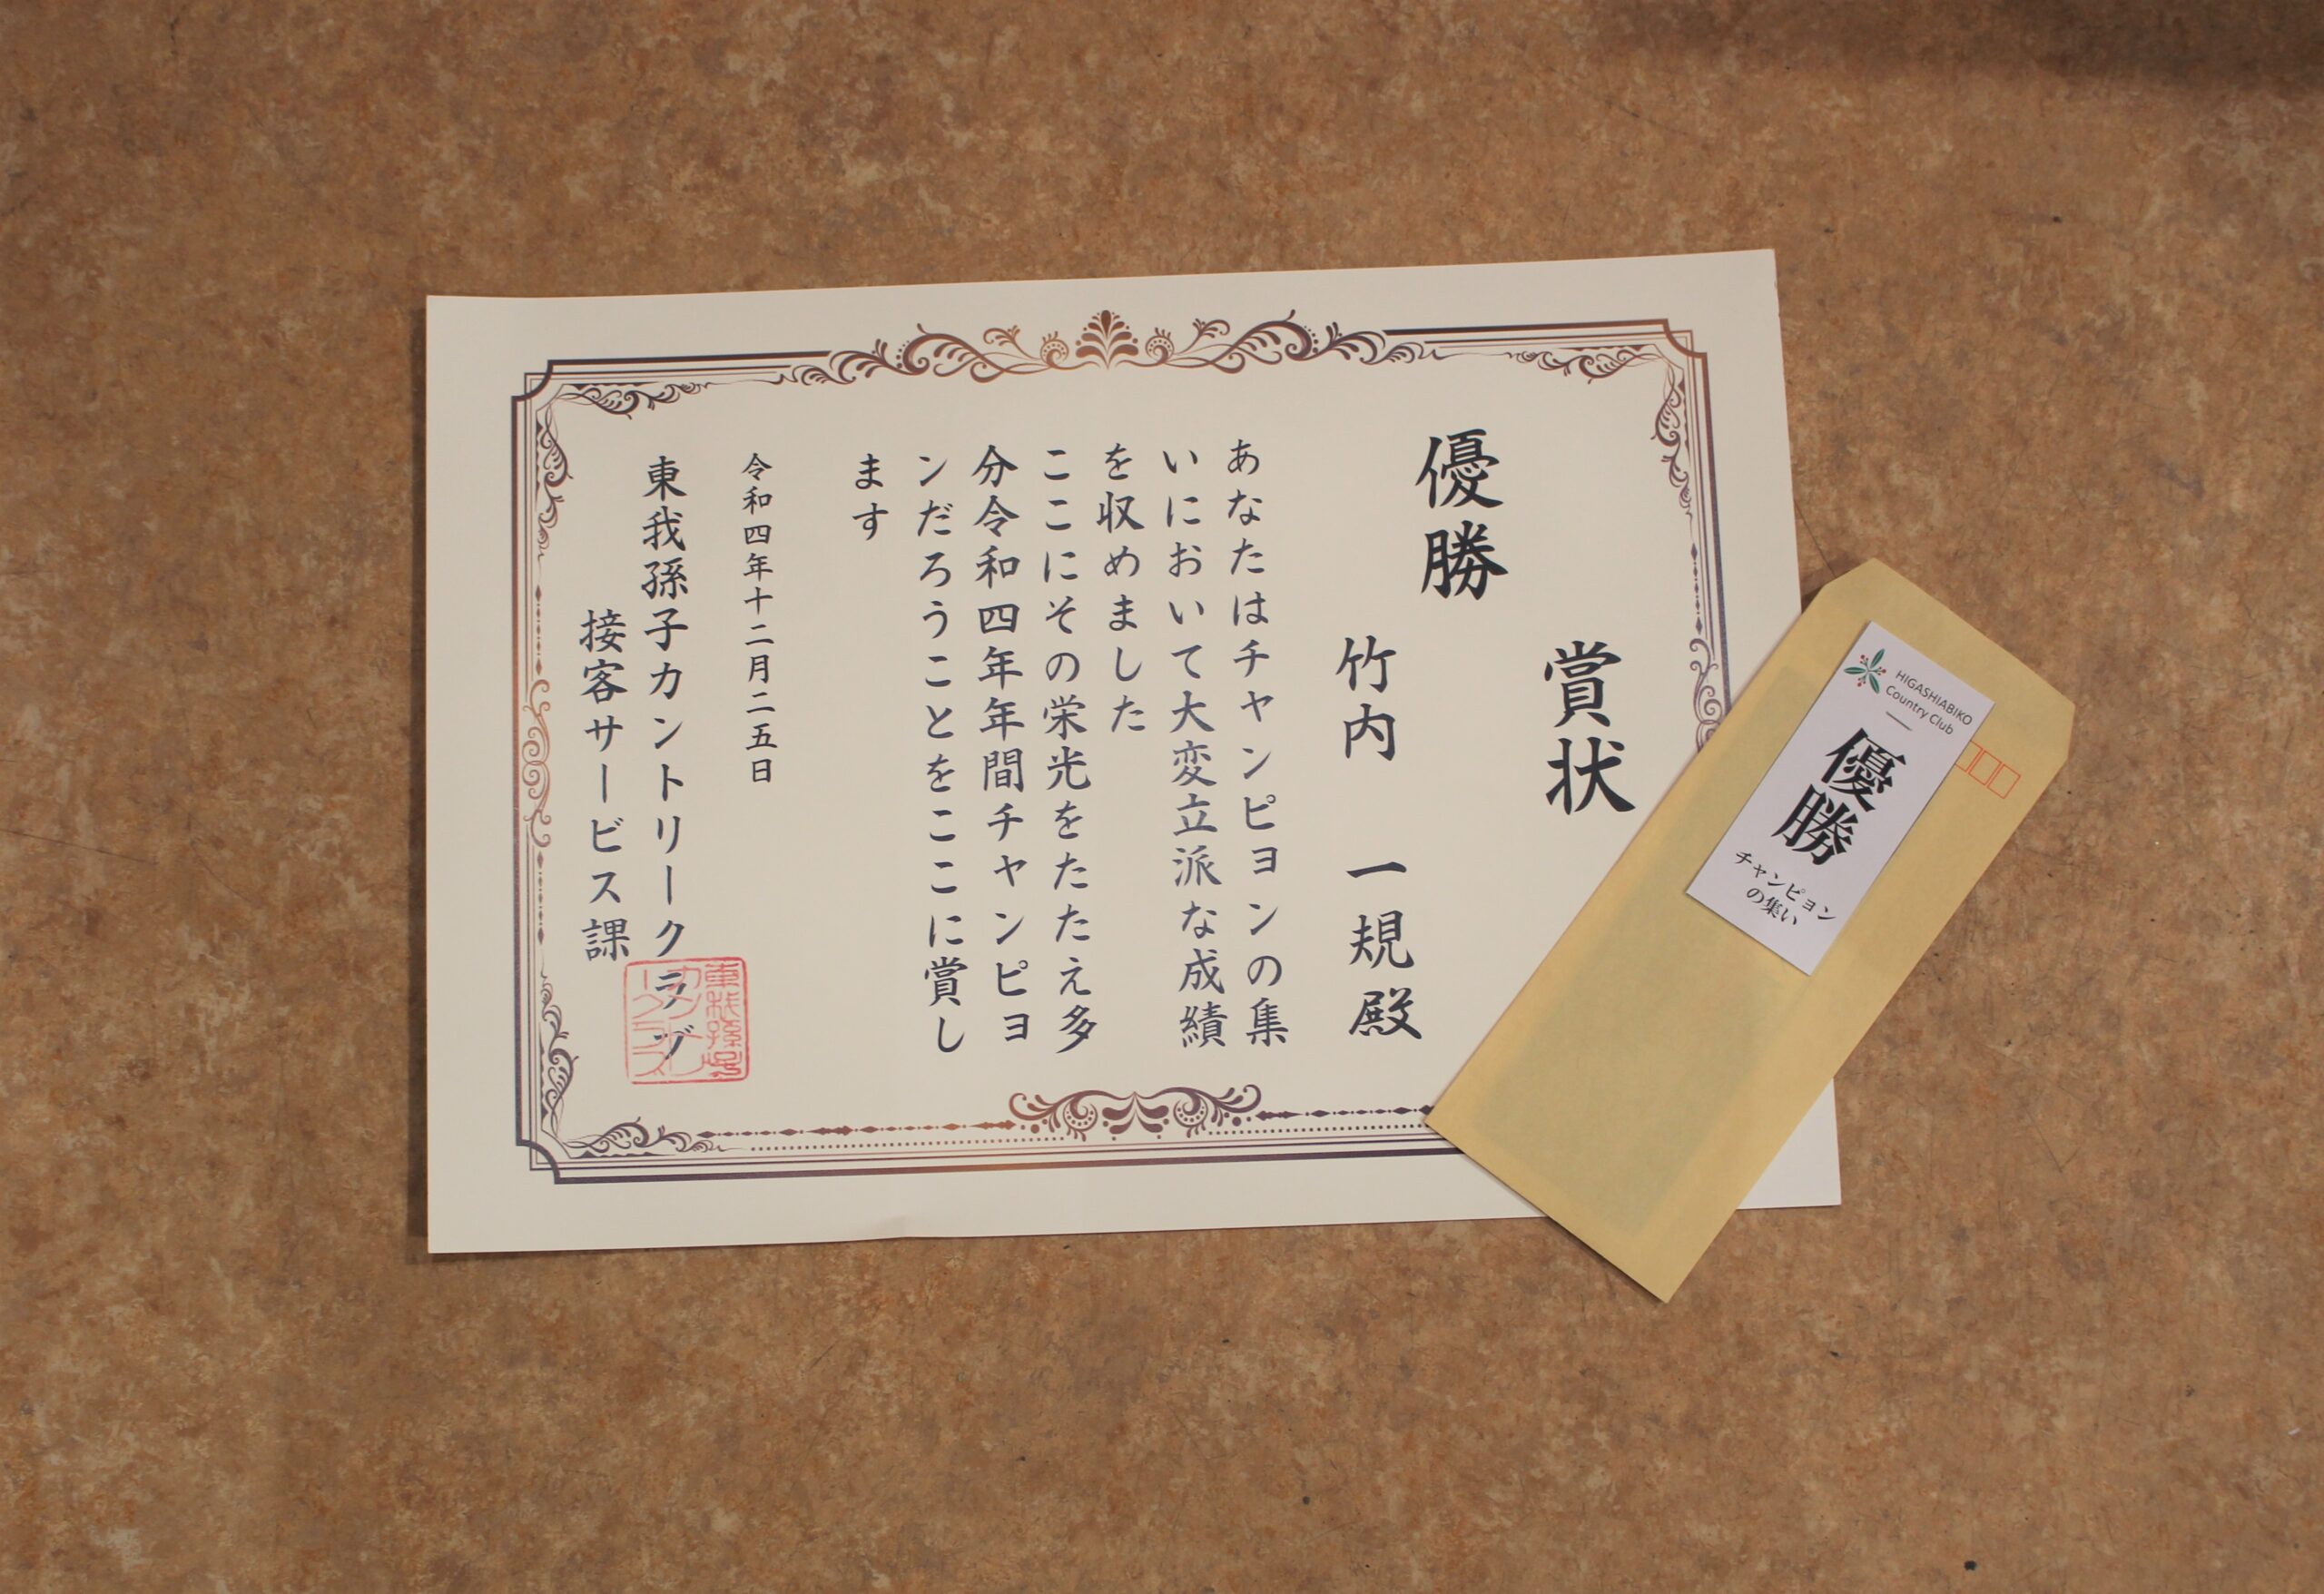 賞状
優勝
竹内 一規殿
あなたはチャンピヨンの集
いにおいて大変立派な成績
を収めました
ここにその栄光をたたえ多
分令和四年年間チャンピヨ
ンだろうことをここに賞し
ます
令和四年十二月二五日
東我孫子カントリークラブ
接客サービス課
HIGASHIABIKO
Country Club
優勝
チャンピョン
の集い